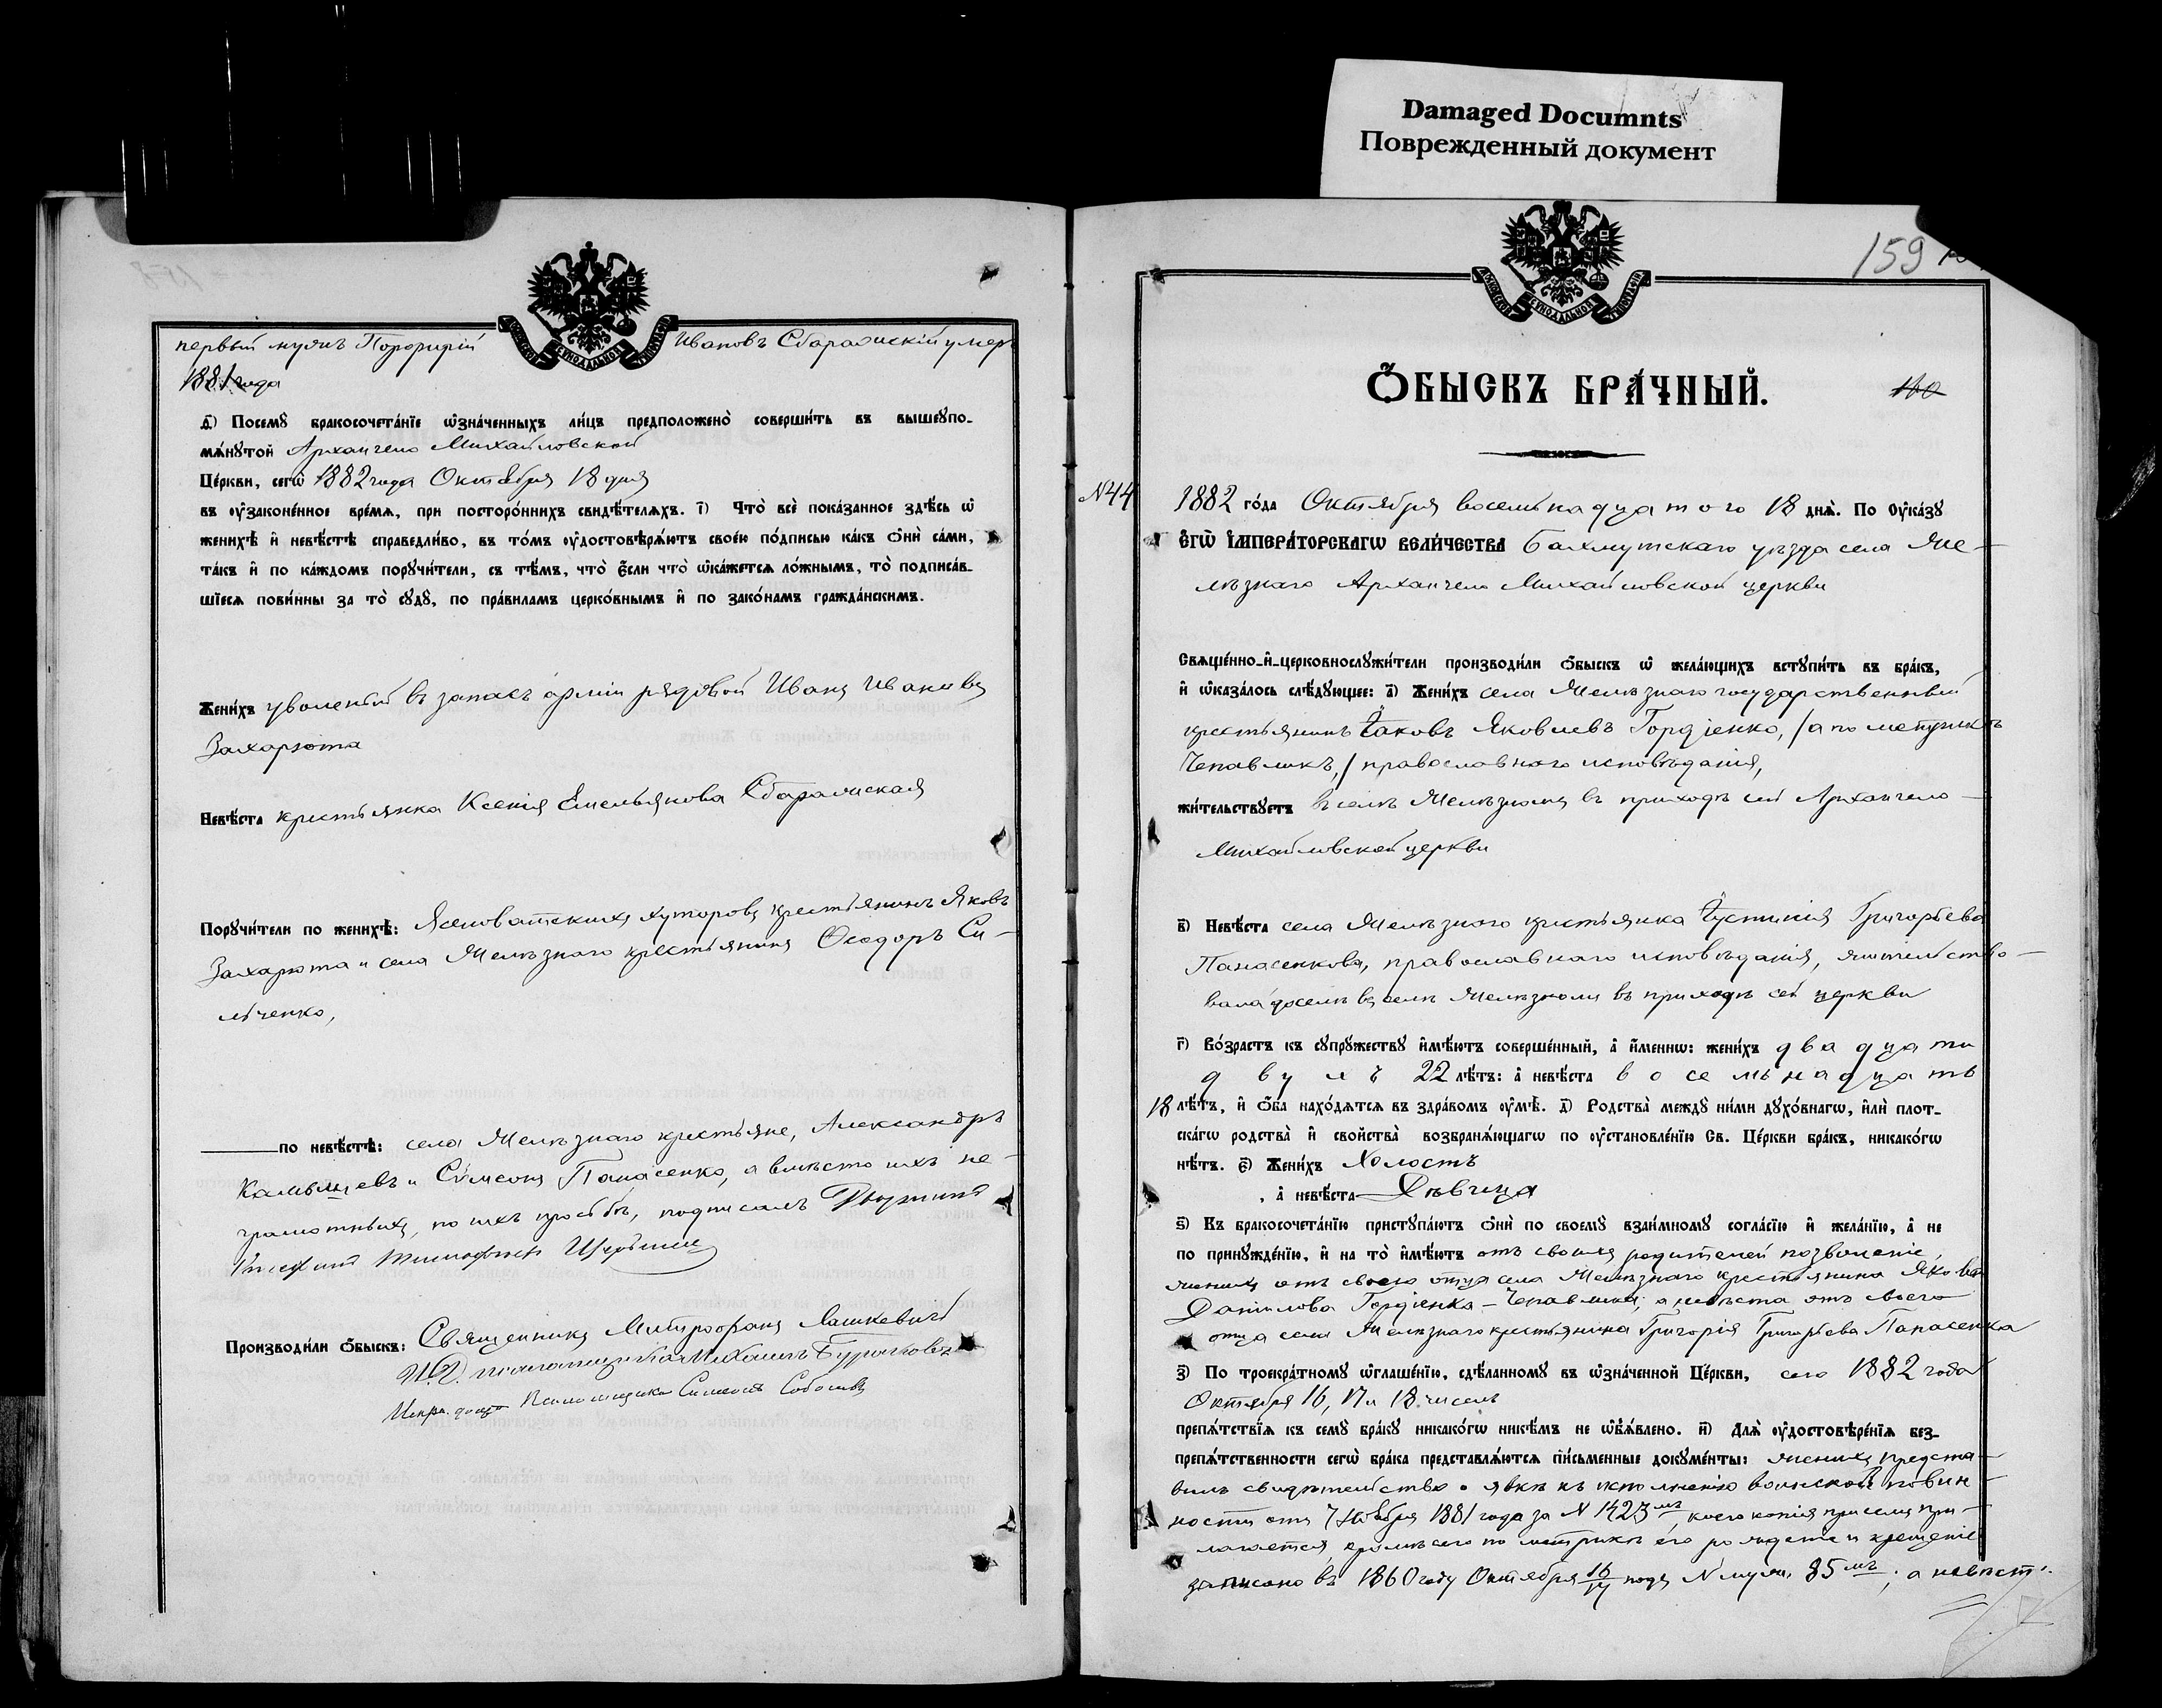 Damaged Documnts
Поврежденный документ
первый мужъ Порфирій Ивановъ Сбаражскій умеръ
1881 года
д҃) Посемꙋ бракосочета́нїе ѡзна́ченныхъ ли́цъ предположено̀ соверши́ть въ вышеꙋпо-
мѧ́нꙋтой Архангело Михайловской
Це́ркви, сегѡ̀ 1882 года Октября 18 дня
въ ᲂу҆зако́не́нное вре́мѧ, при посторо́ннихъ свидѣ́телѧхъ. і҃) Что̀ всѐ пока́занное здѣ́сь ѡ҆
женихѣ̀ и҆ невѣ́стѣ справедли́во, въ то́мъ ᲂу҆достовѣрѧ́ютъ своею по́дписью ка́къ Ѻ҆нѝ са́ми,
та́къ и҆ по ка́ждомъ порꙋчи́тели, съ тѣ́мъ, что̀ є҆́сли что̀ ѡ҆ка́жетсѧ ло́жнымъ, то̀ подписа́в-
шїесѧ пови́нны за то̀ сꙋдꙋ̀, по пра́виламъ церко́внымъ и҆ по зако́намъ гражда́нскимъ.
Жени́хъ уволеный въ запасъ арміи рядовой Иванъ Ивановъ
Захарюта
Невѣ́ста крестьянка Ксенія Емельянова Сбаражская
Порꙋчи́тели по женихѣ̀: Ясеноватскихъ хуторовъ крестьянинъ Яковъ
Захарюта и села Желѣзнаго крестьянинъ Ѳеодоръ Си-
ліченко,
по невѣ́стѣ: села Желѣзнаго крестьяне, Александръ
Камышевъ и Сѵмеонъ Панасенко, а вмѣсто ихъ не-
грамотныхъ, по ихъ просьбѣ, подписалъ
Производи́ли Ѻ҆́быскъ: Священникъ Митрофанъ Лашкевичъ
И.д. псаломщика Михаилъ
Испр. долж. Псаломщика Симеонъ Соболевъ
159
Ѻ҆́БЫСКЪ БРА́ЧНЫЙ.
160
N44
1882 го́да Октября восемьнадцатого 18 днѧ̀. По Оу҆ка́зꙋ
Є҆гѡ̀ І҆мпера́торскагѡ Вели́чества Бахмутскаго уѣзда села Же-
лѣзнаго Архангело Михайловской церкви
Свѧще́нно-и҆-церковнослꙋжи́тели производи́ли Ѻ҆́быскъ ѡ҆ жела́ющихъ встꙋпи́ть въ бра́къ,
и҆ ѡ҆каза́лось слѣ́дꙋющее: а҃) Жени́хъ села Желѣзнаго государственный
крестьянинъ Іаковъ Яковлевъ Гордіенко, /а по метрикѣ
Чепавликъ,/ православнаго исповѣданія,
жи́тельствꙋетъ въ селѣ Желѣзномъ въ приходѣ сей Архангело-
Михайловской церкви
в҃) Невѣ́ста села Желѣзнаго крестьянка Іустинія Григорьева
Панасенкова, православнаго исповѣданія, жительство-
вала доселѣ въ селѣ Желѣзномъ въ приходѣ сей церкви
г҃) Во́зрастъ къ сꙋпрꙋ́жествꙋ и҆мѣ́ютъ соверше́нный, а҆ и҆́меннѡ: жени́хъ двадцати
двухъ 22 лѣ́тъ: а҆ невѣ́ста восемьнадцать
18 лѣ́тъ, и҆ Ѻ҆́ба нахо́дѧтсѧ въ здра́вомъ ᲂу҆мѣ̀. д҃) Родства̀ междꙋ̀ ни́ми дꙋхо́внагѡ, и҆лѝ плот-
ска́гѡ родства̀ и҆ свойства̀ возбранѧ́ющагѡ по ᲂу҆становле́нїю Св. Це́ркви бра́къ, никако́гѡ
нѣ́тъ. є҃) Жени́хъ Холостъ
, а҆ невѣ́ста Дѣвица
ѕ҃) Къ бракосочета́нїю пристꙋпа́ютъ Ѻ҆нѝ по своемꙋ̀ взаи́мномꙋ согла́сїю и҆ жела́нїю, а҆ не
по принꙋжде́нїю, и҆ на то̀ и҆мѣ́ютъ отъ своихъ родителей позволеніе,
женихъ отъ своего отца села Желѣзнаго крестьянина Якова
Данилова Гордіенка-Чепавлика; а невѣста отъ своего
отца села Желѣзнаго крестьянина Григорія Григорьева Панасенка
з҃) По троекра́тномꙋ ѡ҆глаше́нїю, сдѣ́ланномꙋ въ ѡ҆зна́ченной Це́ркви, сего 1882 года
Октября 16, 17 и 18 числъ
препѧ́тствїѧ къ семꙋ̀ бра́кꙋ никако́гѡ никѣ́мъ не ѡ҆б̾ѧ́влено. и҃) Длѧ̀ ᲂу҆достовѣре́нїѧ без-
препѧ́тственности сегѡ̀ бра́ка представлѧ́ютсѧ пи́сьменные докꙋме́нты: женихъ предста-
вилъ свидѣтельство о явкѣ къ исполненію воинской повин-
ности отъ 7 Ноября 1881 года за N 1423мъ, коего копія при семъ при-
лагается, кромѣ сего по метрикѣ его рожденіе и крещеніе
записано въ 1860 году Октября 16/17 подъ N муж. 85мъ; а невѣст